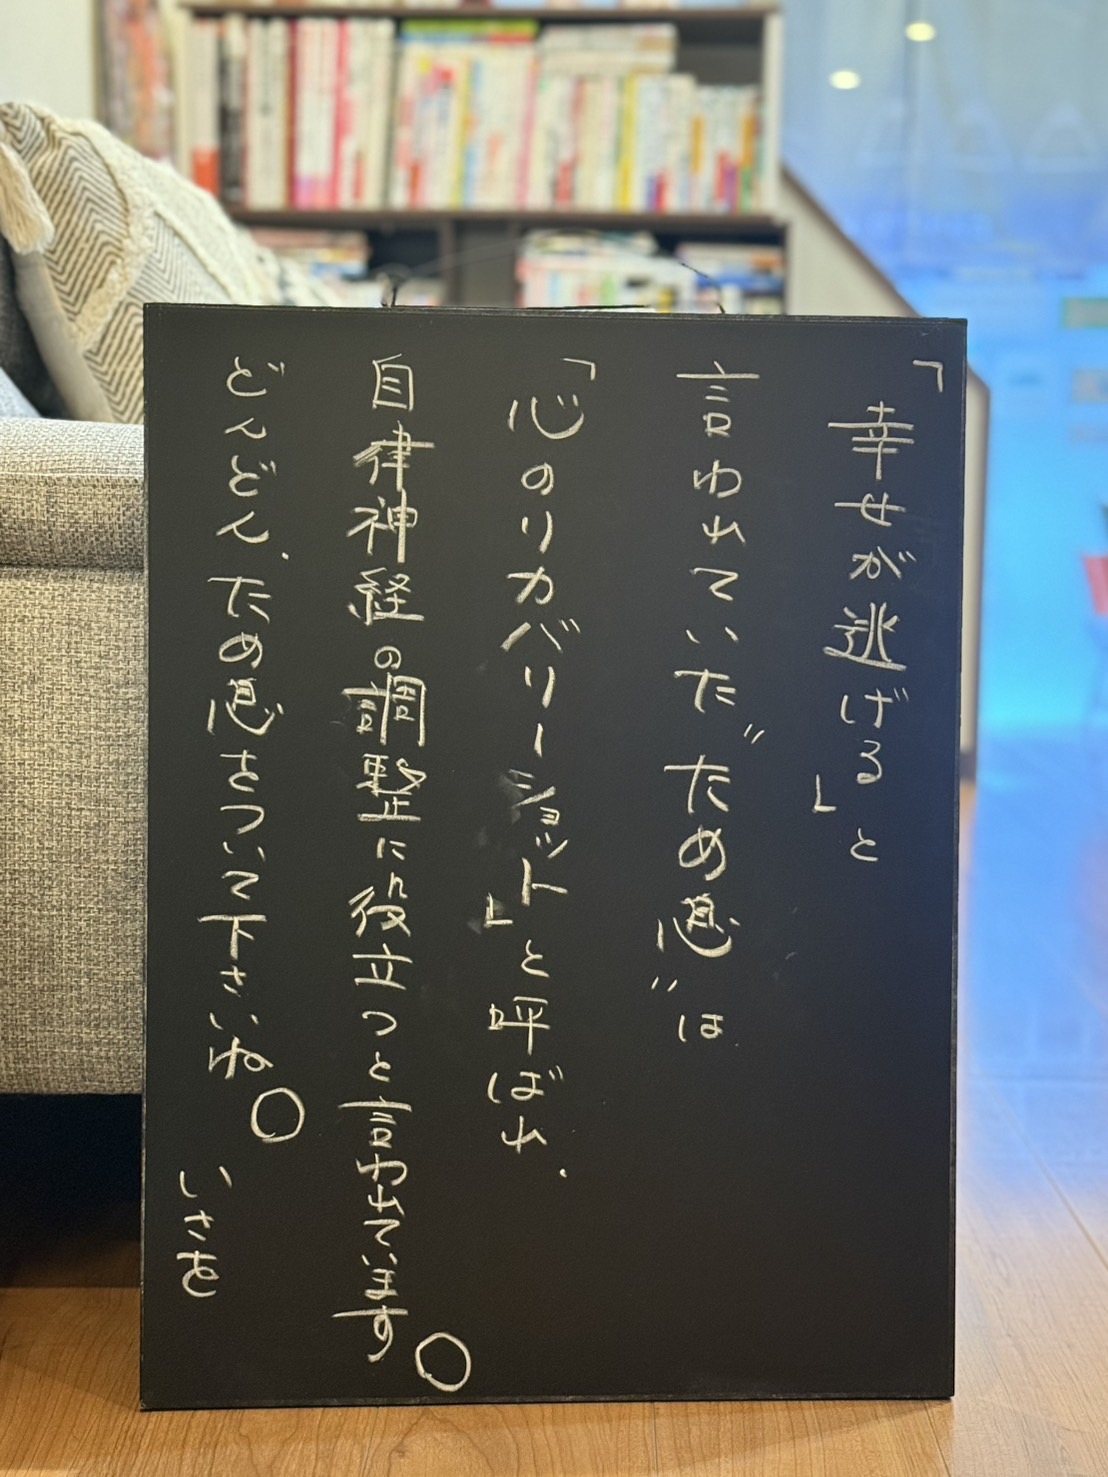 「幸せが逃げる」と
言われていた"ため息"は
「心のリカバリーショット」と呼ばれ、
自律神経の調整に役立つと言われています。
どんどん、ため息をついて下さいね。
いさを